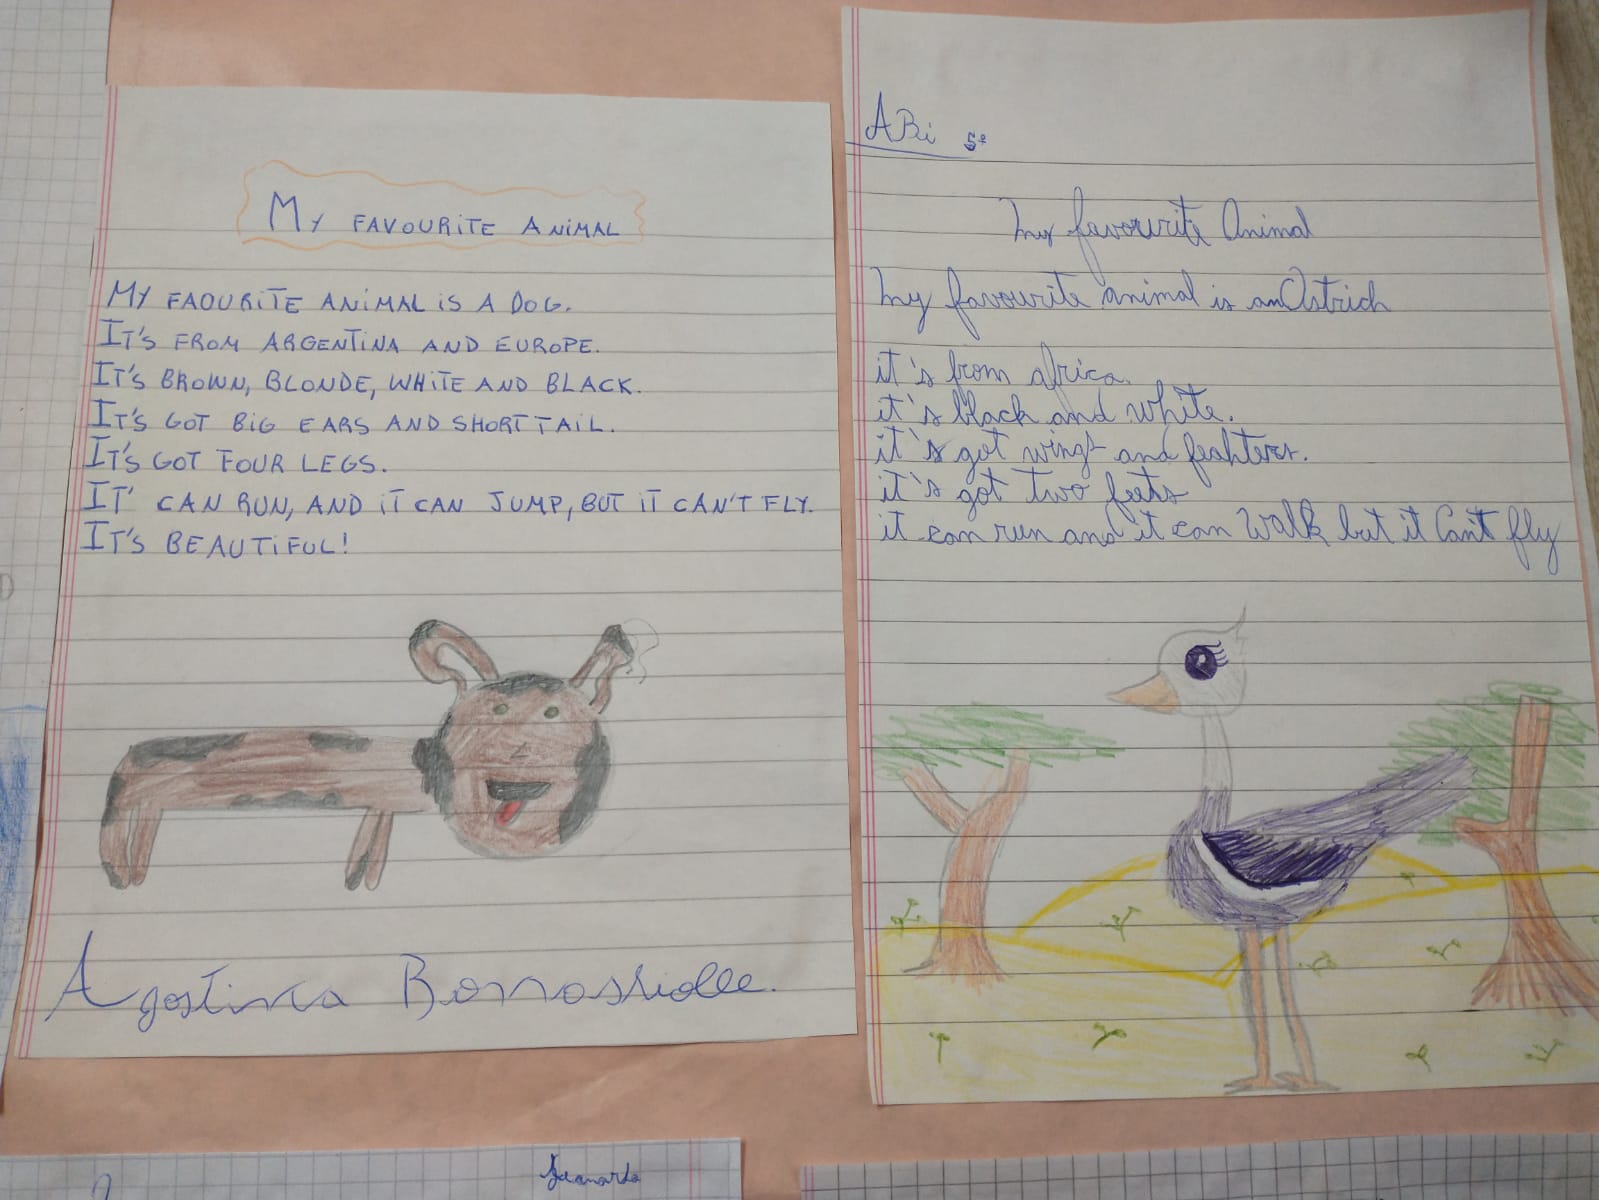 My FAVOURITE ANIMAL
MY FAOURITE ANIMAL IS A DOG.
IT'S FROM ARGENTINA AND EUROPE.
IT'S BROWN, BLONDE, WHITE AND BLACK.
IT'S GOT BIG EARS AND SHORT TAIL.
IT'S GOT FOUR LEGS.
IT' CAN RUN, AND IT CAN JUMP, BUT IT CAN'T FLY.
IT'S BEAUTIFUL!
Agostina
ABi 5º
My favourite Animal
My favourite animal is an Ostrich
it's from africa.
it's black and white.
it's got wings and feahters.
it's got two feets
it can run and it can Walk but it Can't fly